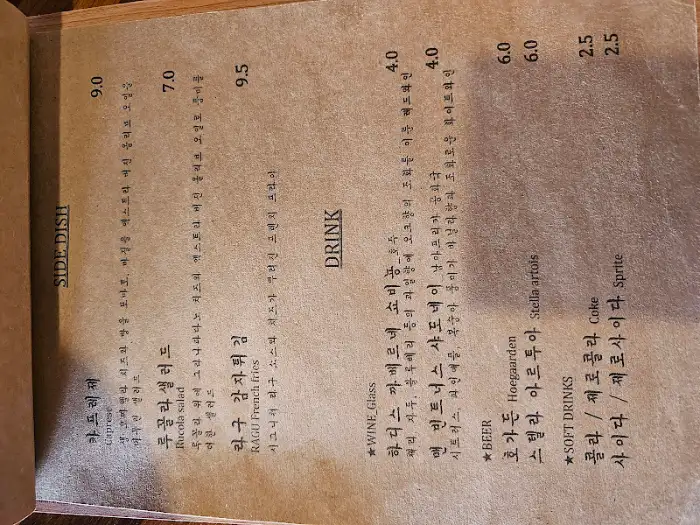 SIDE DISH
카프레제 9.0
Caprese
생 모짜렐라 치즈와 방울 토마토, 바질을 엑스트라 버진 올리브 오일을
버무린 샐러드
루꼴라샐러드 7.0
Rucola salad
루꼴라 위에 그라나파다노 치즈와 엑스트라 버진 올리브 오일로 풍미를
더한 샐러드
라구 감자튀김 9.5
RAGU French fries
시그니처 라구 소스와 치즈가 뿌려진 프렌치 프라이
DRINK
★WINE_Glass
하디스 까베르네 쇼비뇽_호주 4.0
체리 자두, 블루베리 등의 과일향에 오크향의 조화를 이룬 레드와인
맨 빈트너스 샤도네이_남아프리카 공화국 4.0
시트러스, 파인애플, 복숭아 풍미가 바닐라향과 조화로운 화이트와인
★BEER
호가든 Hoegaarden 6.0
스텔라 아르투아 Stella artois 6.0
★SOFT DRINKS
콜라 / 제로콜라 Coke 2.5
사이다 / 제로사이다 Sprite 2.5